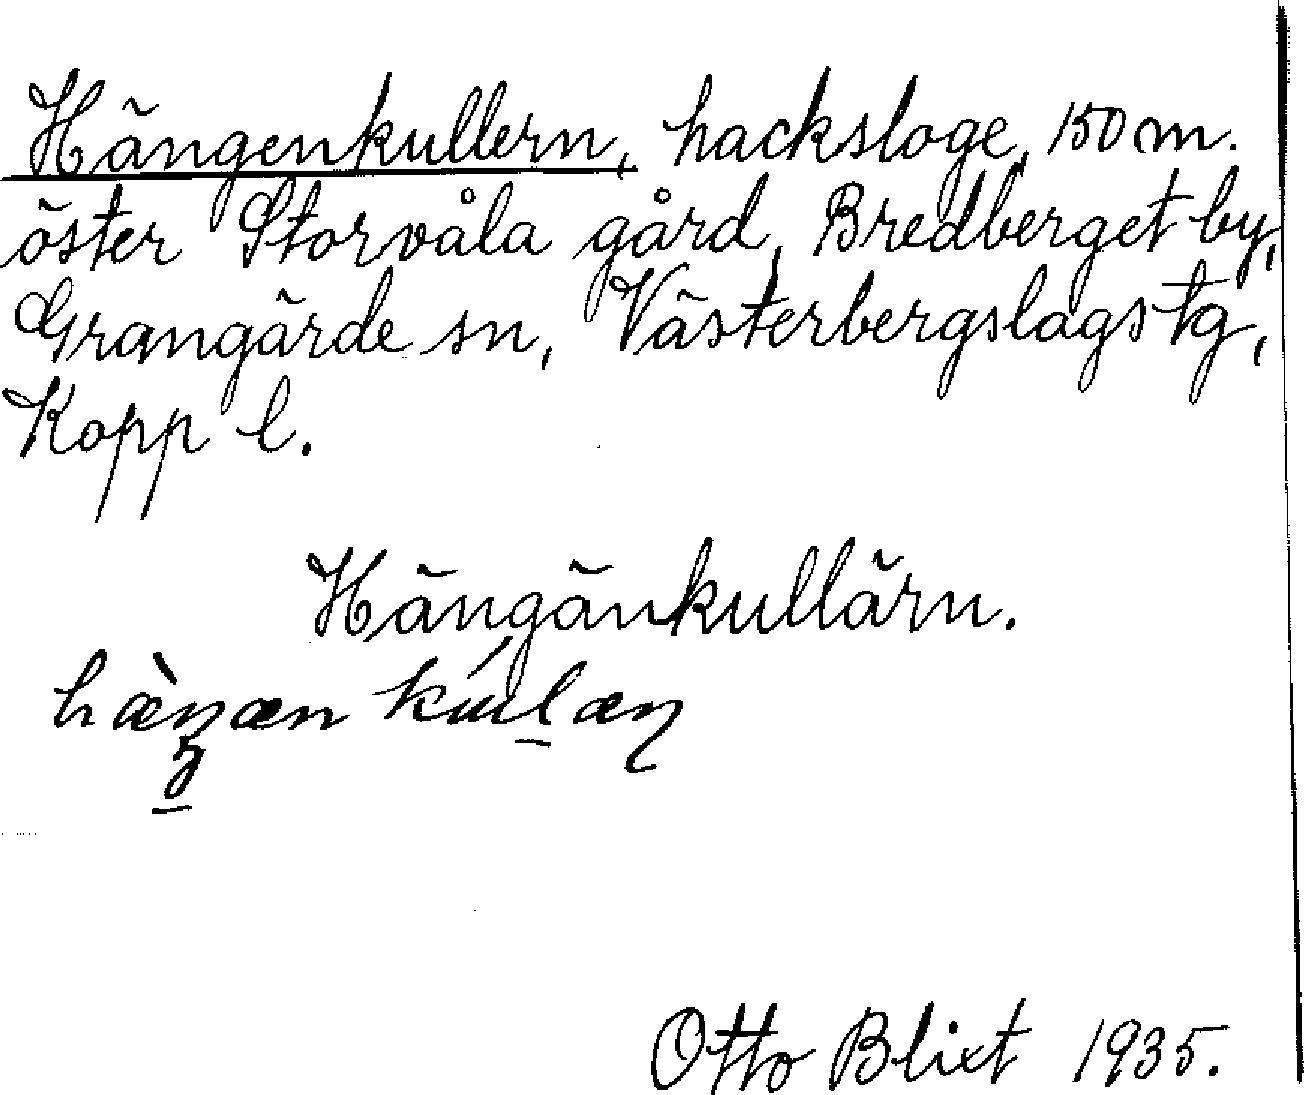 Hängenkullern, hacksloge, 150 m.
öster Storvåla gård, Bredberget by,
Grangärde sn, Västerbergslags tg,
Kopp l.
Hängänkullärn.
Otto Blixt 1935.